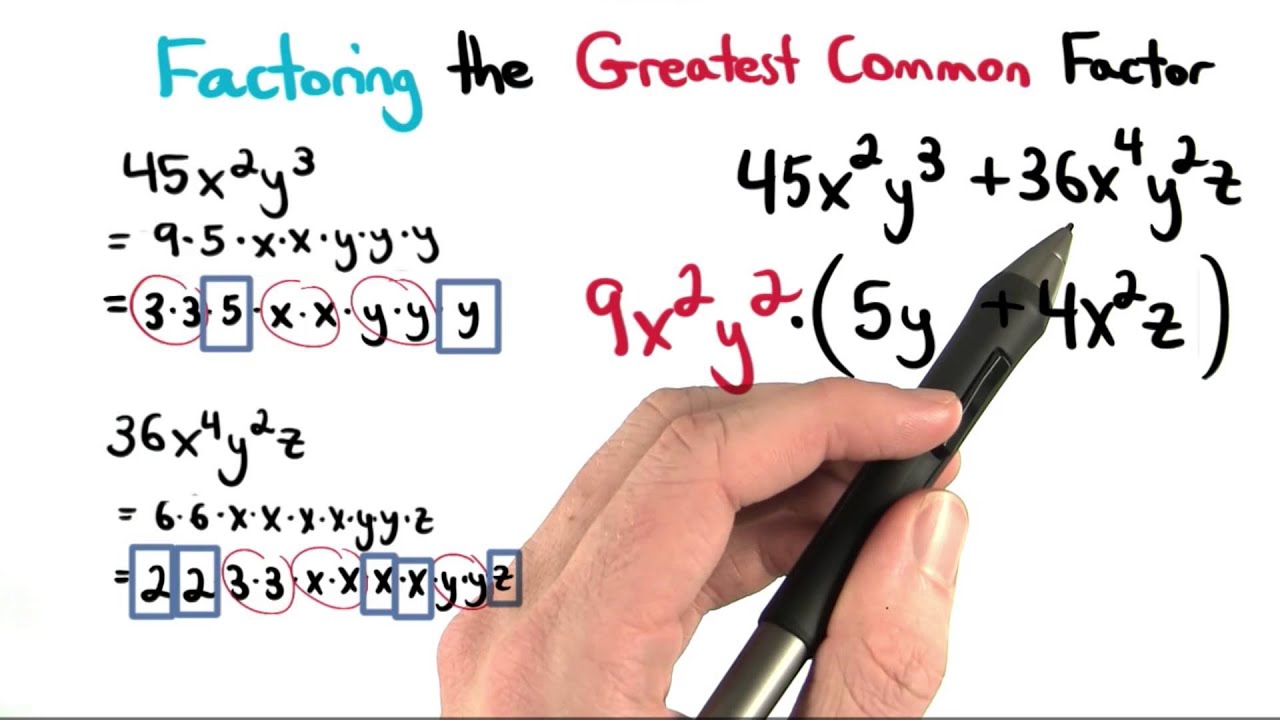 Factoring the Greatest Common Factor
45x²y³
= 9·5·x·x·y·y·y
= 3·3·5·x·x·y·y·y
36x⁴y²z
= 6·6·x·x·x·x·y·y·z
= 2 2 3·3·x·x·x·x·y·y z
45x²y³ + 36x⁴y²z
9x²y²·(5y + 4x²z)